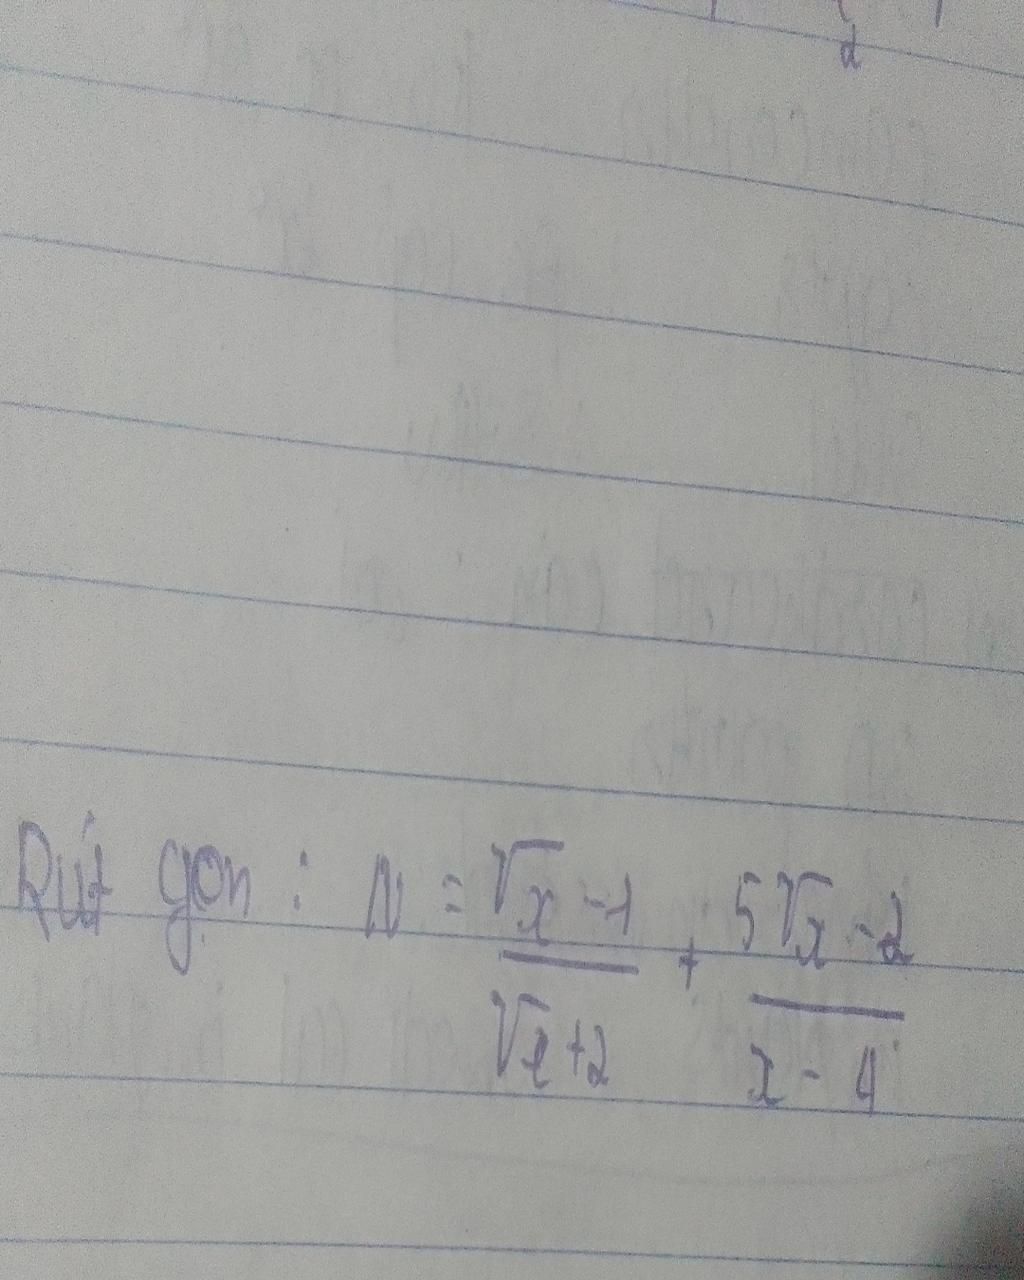 d
Rút gọn : N = √x -1 / √x +2 + 5√x -2 / x - 4